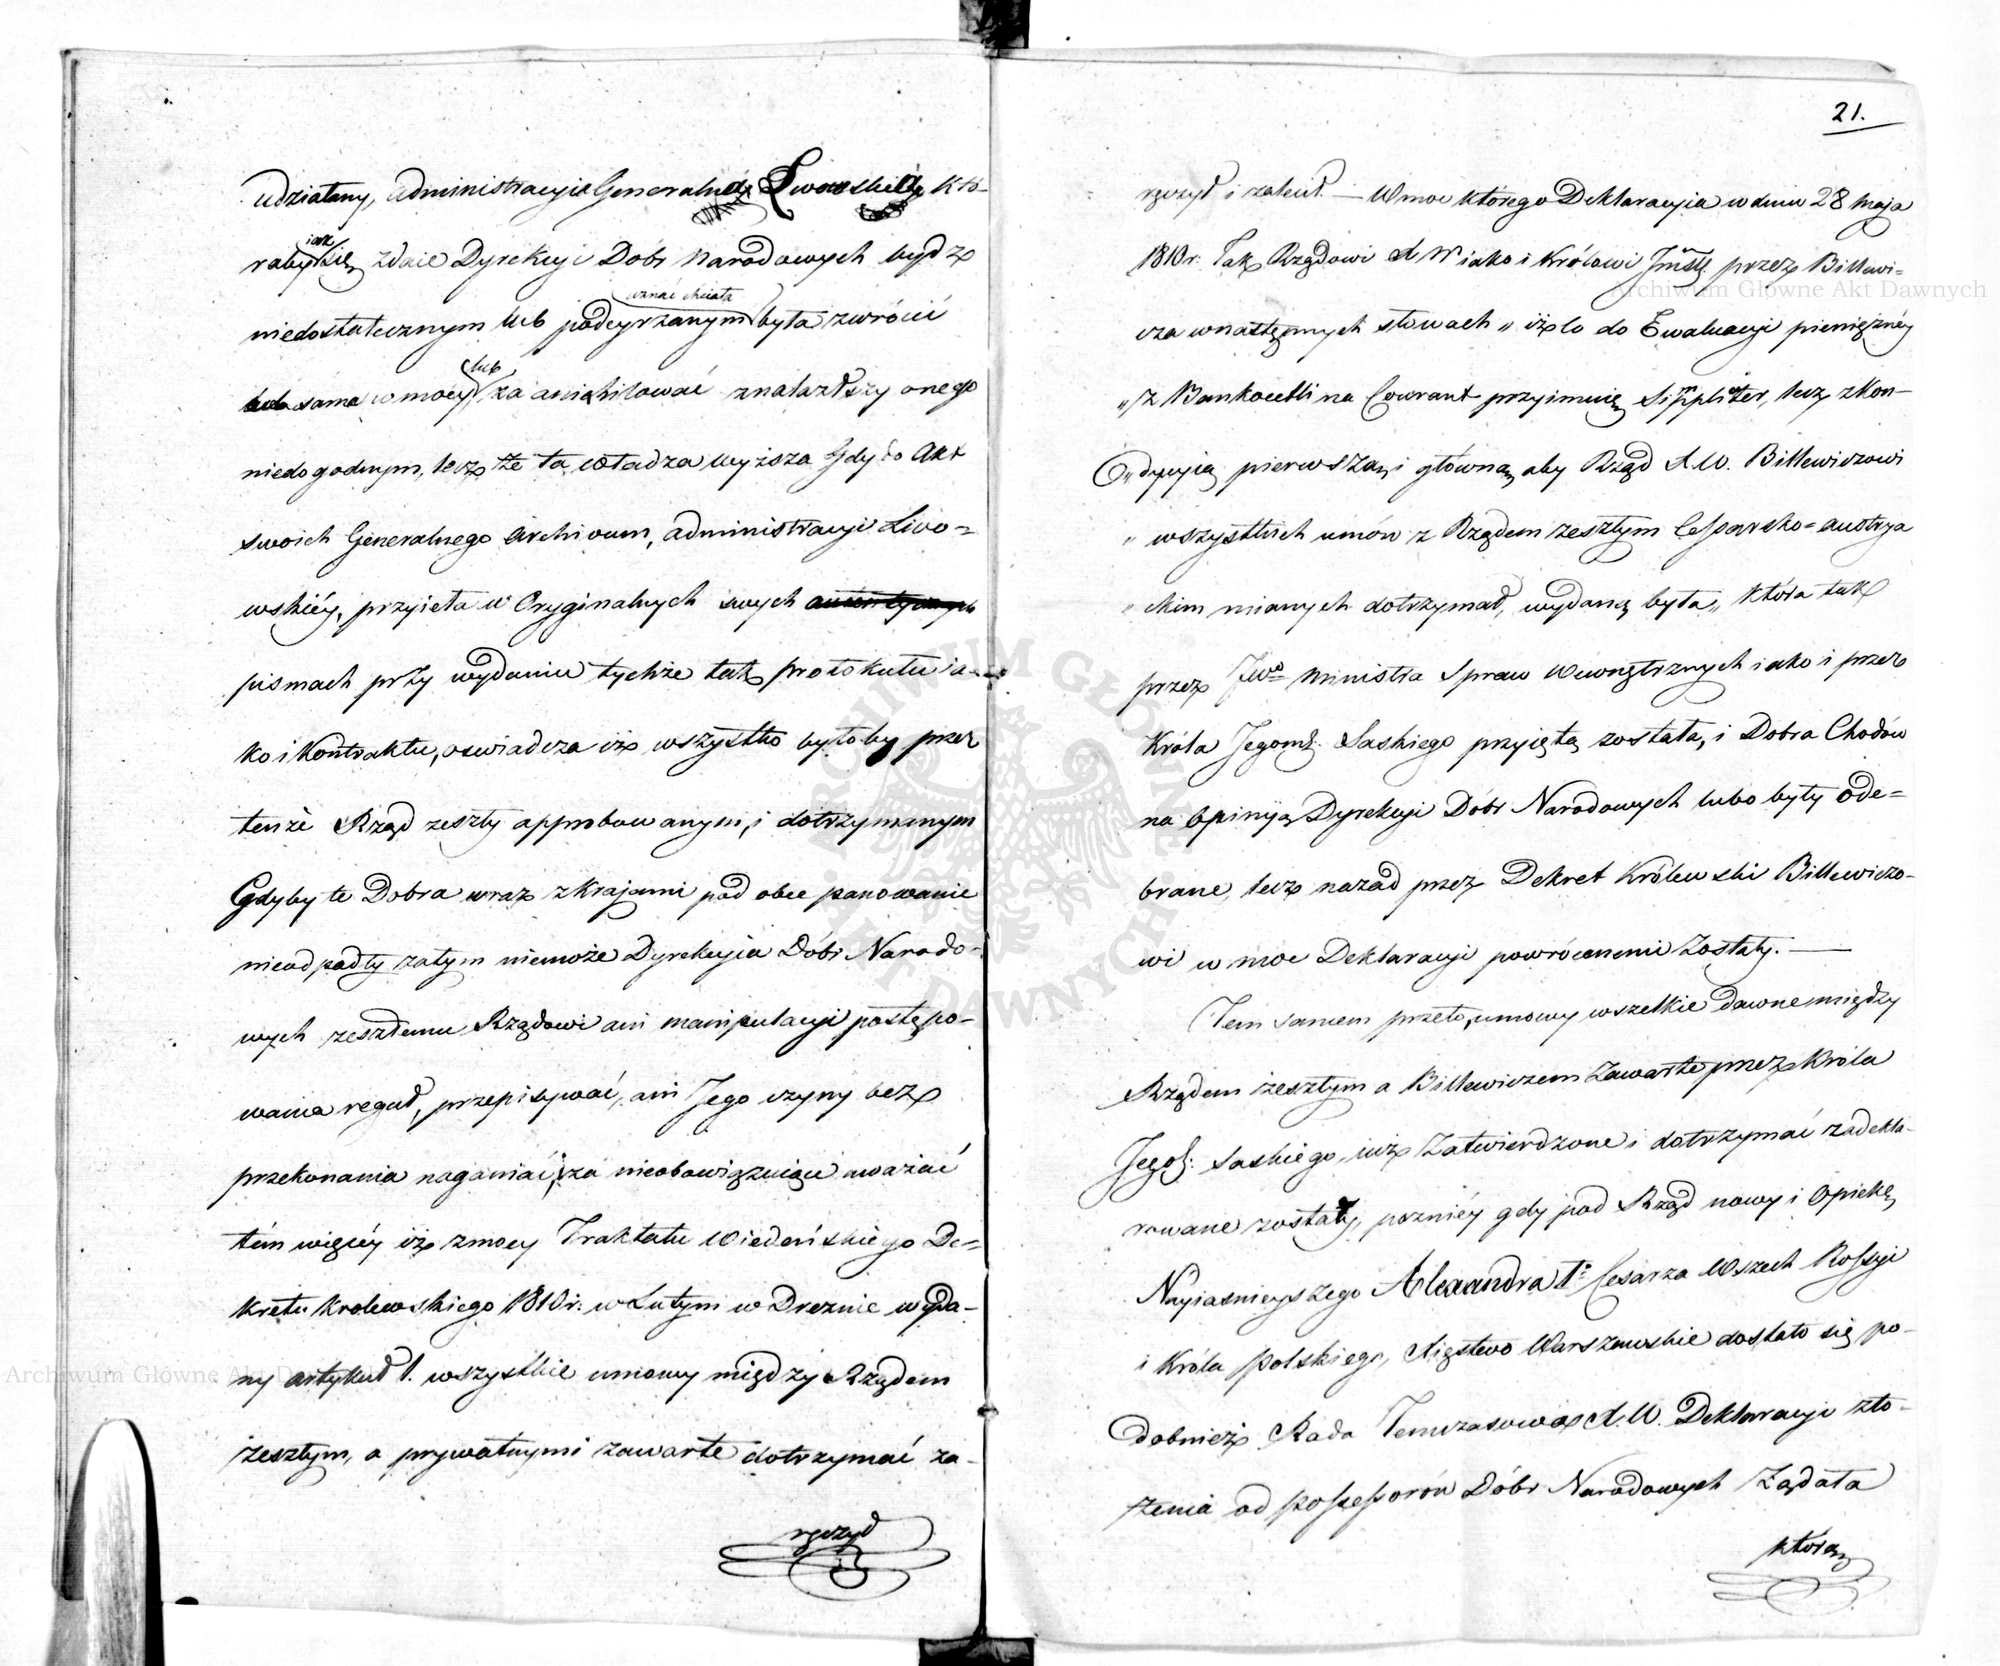 udziałany, administracyia Generalna Lwowska któ-
raby iak się zdaie Dyrekcyi Dóbr Narodowych bydź
niedostatecznym lub podeyrzanym uznać chciała była zwrócić
sama w mocy lub za anichilować znalazłszy onego
niedogodnym, lecz że ta władza wyższa Gdy do Akt
swoich Generalnego Archivum, administracyi Lwo=
wskiéy, przyieła w Oryginalnych swych
pismach przy wydaniu tychże tak protokułu ia-
ko i Kontraktu, oswiadcza iż wszystko byłoby przez
tenże Rząd zeszły approbowanym, i dotrzymanym
Gdyby te Dobra wraz z krajami pod obce panowanie
nieodpadły zatym niemoże Dyrekcyia Dóbr Narodo-
wych zeszłemu Rządowi ani manipulacyi postępo-
wania reguł, przepisywać, ani Jego czyny bez
przekonania naganiać, i za nieobowięzuiące uważać
tém więcéy iż z mocy Traktatu Wiedeńskiego De=
kretu Krolewskiego 1810 r: w Lutym w Dreznie wyda-
ny artykuł 1. wszystkie umowy między Rządem
zeszłym, a prywatnymi zawarte dotrzymać za-
ręczył
21.
ręczył i zalecił. — W moc którego Deklaracyia w dniu 28 Maja
1810 r. Tak Rządowi X W iako i Królowi Jmści przez Billewi-
cza w następnych słowach „ iż lo do Ewaluacyi pieniężnéy
„ z Bankocetli na Courant przyimuię Simpliciter, lecz z kon-
„ dycyią pierwszą i główną aby Rząd X. W. Billewiczowi
„ wszystkich umów z Rządem zeszłym Cesarsko=austrya
„ ckim mianych dotrzymał, wydaną była „ która tak
przez JWo Ministra Spraw Wewnętrznych iako i przez
Króla Jegomś. Saskiego przyiętą została, i Dobra Chodów
na Opinyą Dyrekcyi Dóbr Narodowych lubo były ode=
brane, lecz nazad przez Dekret Królewski Billewiczo-
wi w moc Deklaracyi powróconemi zostały. —
Tem samem przeto, umowy wszelkie dawne między
Rządem zeszłym a Billewiczem zawarte przez Króla
Jegoś. Saskiego, iuż zatwierdzone i dotrzymać zadekla-
rowane zostały, pozniéy gdy pod Rząd nowy i Opiekę
Nayiasnieyszego Alexandra 1o Cesarza Wszech Rossyi
i Króla Polskiego, Xięstwo Warszawskie dostało się po-
dobnież Rada Temczasowa X. W. Deklaracyi zło-
żenia od Possessorów Dóbr Narodowych Żądała
którą
Archiwum Główne Akt Dawnych